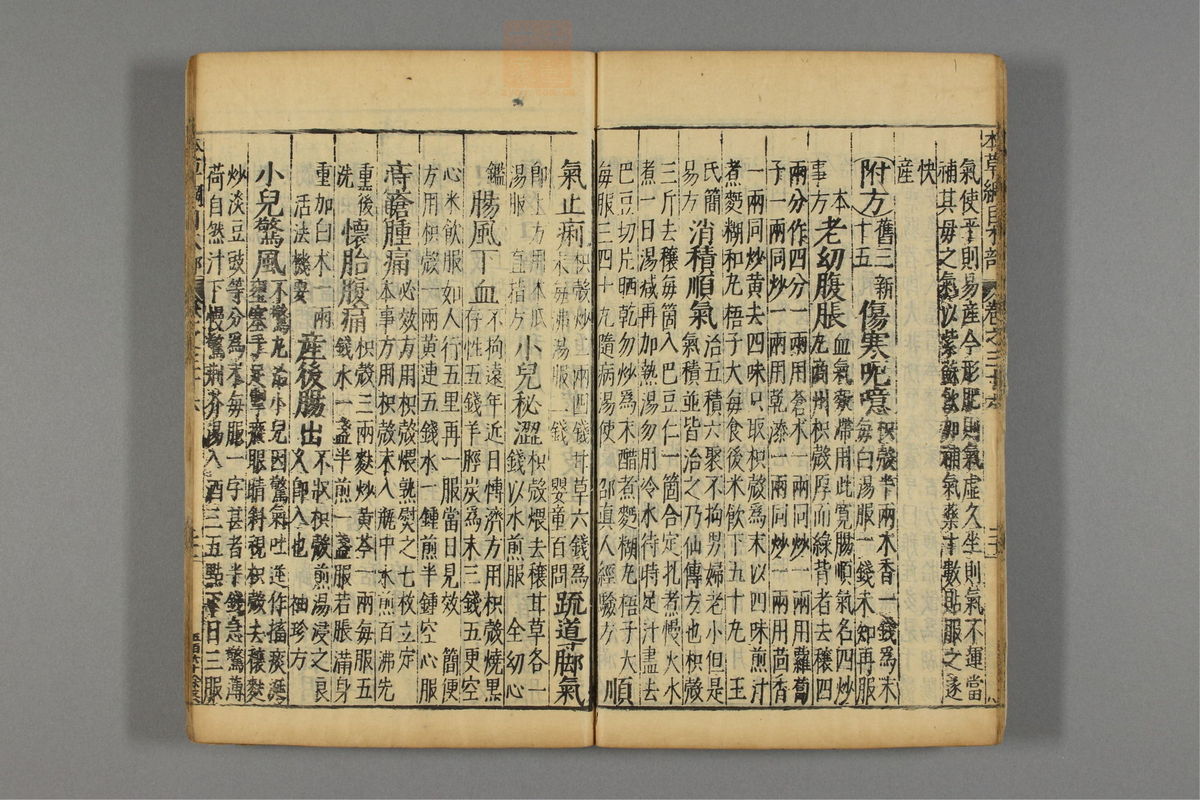 氣使乎則易産今形肥則氣虛久坐則氣不運當
補其母之氣以紫蘇飲加補氣藥十數貼服之遂
快
産
附方舊三新十五傷寒呃噫枳殼半兩木香一錢爲末每白湯服一錢未知再服
本事方老幼腹脹血氣凝滯用此寬腸順氣名四炒丸商州枳殼厚而綠背者去穰四
兩分作四分一兩用蒼朮一兩同炒一兩用蘿蔔
子一兩同炒一兩用乾漆一兩同炒一兩用茴香
一兩同炒黃去四味只取枳殼爲末以四味煎汁
煮麪糊和丸梧子大每食後米飲下五十丸王
氏簡易方消積順氣治五積六聚不拘男婦老小但是氣積並皆治之乃仙傳方也枳殼
三斤去穰每箇入巴豆仁一箇合定扎煮慢火水
煮一日湯減再加熱湯勿用冷水待時足汁盡去
巴豆切片晒乾勿炒爲末醋煮麪糊丸梧子大
每服三四十丸隨病湯使邵真人經驗方順
氣止痢枳殼炒二兩四錢甘草六錢爲末每沸湯服二錢嬰童百問疏道脚氣
即上方用木瓜湯服直指方小兒秘澀枳殼煨去穰甘草各一錢以水煎服全幼心
鑑腸風下血不拘遠年近日博濟方用枳殼燒黑存性五錢羊脛炭爲末三錢五更空
心米飲服如人行五里再一服當日見效簡便
方用枳殼一兩黃連五錢水一鍾煎半鍾空心服
痔瘡腫痛必效方用枳殼煨熟熨之七枚立定本事方用枳殼末入瓶中水煎百沸先
熏後洗懷胎腹痛枳殼三兩麩炒黃芩一兩每服五錢水一盞半煎一盞服若脹滿身
重加白朮一兩活法機要産後腸出不收枳殼煎湯浸之良久即入也袖珍方
小兒驚風不驚丸治小兒因驚氣吐逆作搐痰涎壅塞手足掣瘲眼睛斜視枳殼去穰麩
炒淡豆豉等分爲末每服一字甚者半錢急驚薄
荷自然汁下慢驚荆芥湯入酒三五點下日三服